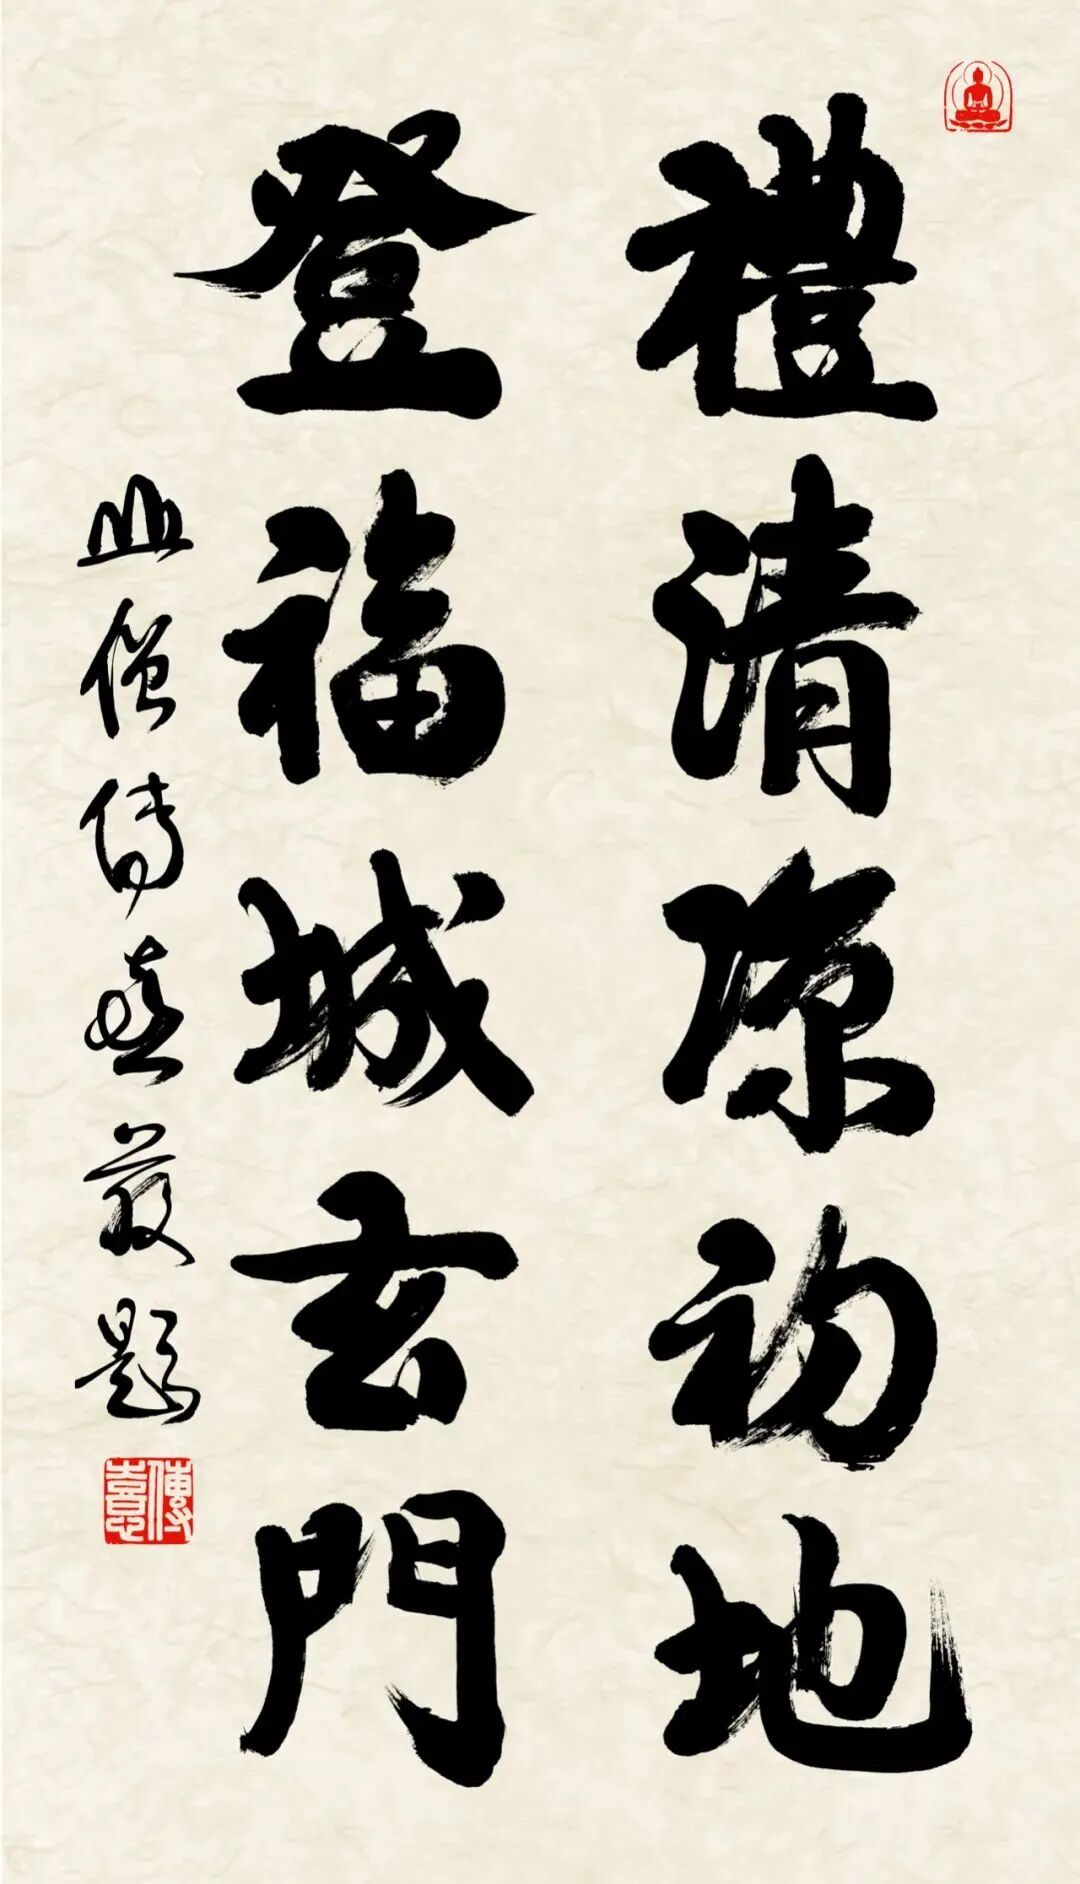 禮清涼初地
登福城玄門
山僧傳喜敬題
傳喜